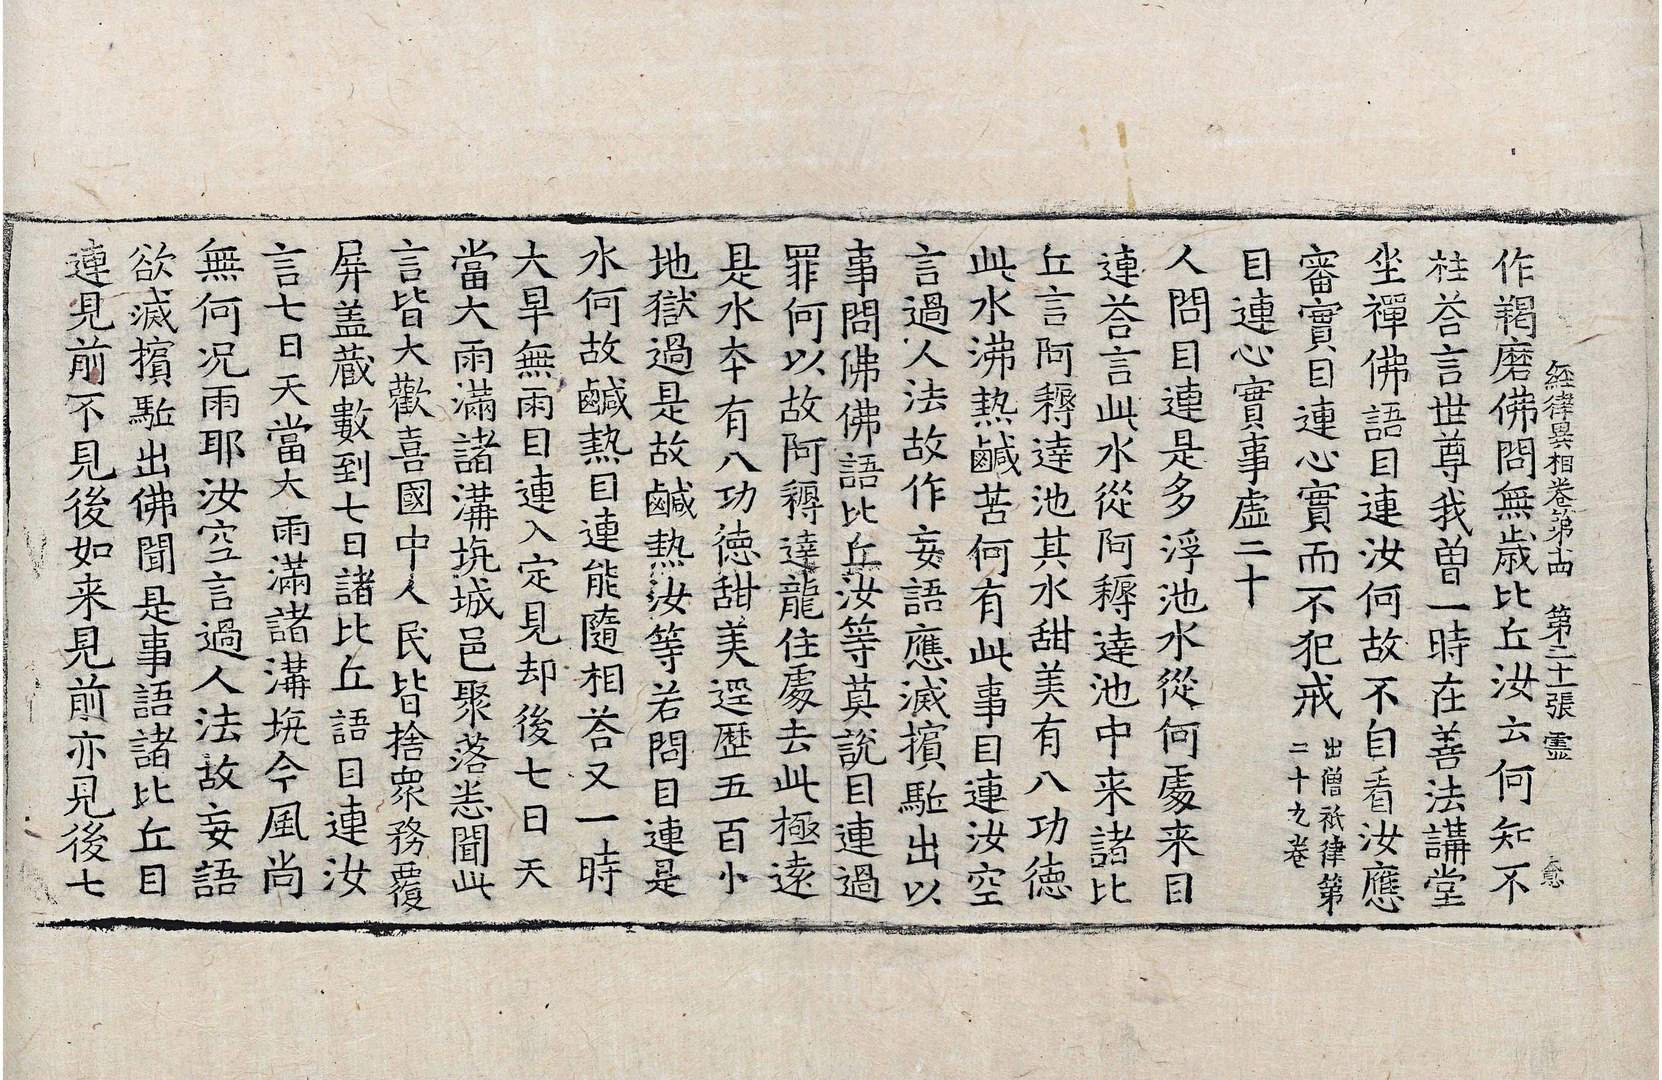 經律異相卷第十四　第二十一張　靈
作羯磨佛問無歲比丘汝云何知不
柱荅言世尊我曽一時在善法講堂
坐禪佛語目連汝何故不自看汝應
審實目連心實而不犯戒出僧祇律第二十九卷
目連心實事虛二十
人問目連是多浮池水從何處来目
連荅言此水從阿耨達池中来諸比
丘言阿耨達池其水甜美有八功徳
此水沸熱鹹苦何有此事目連汝空
言過人法故作妄語應滅擯駈出以
事問佛佛語比丘汝等莫說目連過
罪何以故阿耨達龍住處去此極遠
是水夲有八功徳甜美逕歷五百小
地獄過是故鹹熱汝等若問目連是
水何故鹹熱目連能隨相荅又一時
大旱無雨目連入定見却後七日天
當大雨滿諸溝坑城邑聚落悉聞此
言皆大歡喜國中人民皆捨衆務覆
屏盖藏數到七日諸比丘語目連汝
言七日天當大雨滿諸溝坑今風尚
無何况雨耶汝空言過人法故妄語
欲滅擯駈出佛聞是事語諸比丘目
連見前不見後如来見前亦見後七